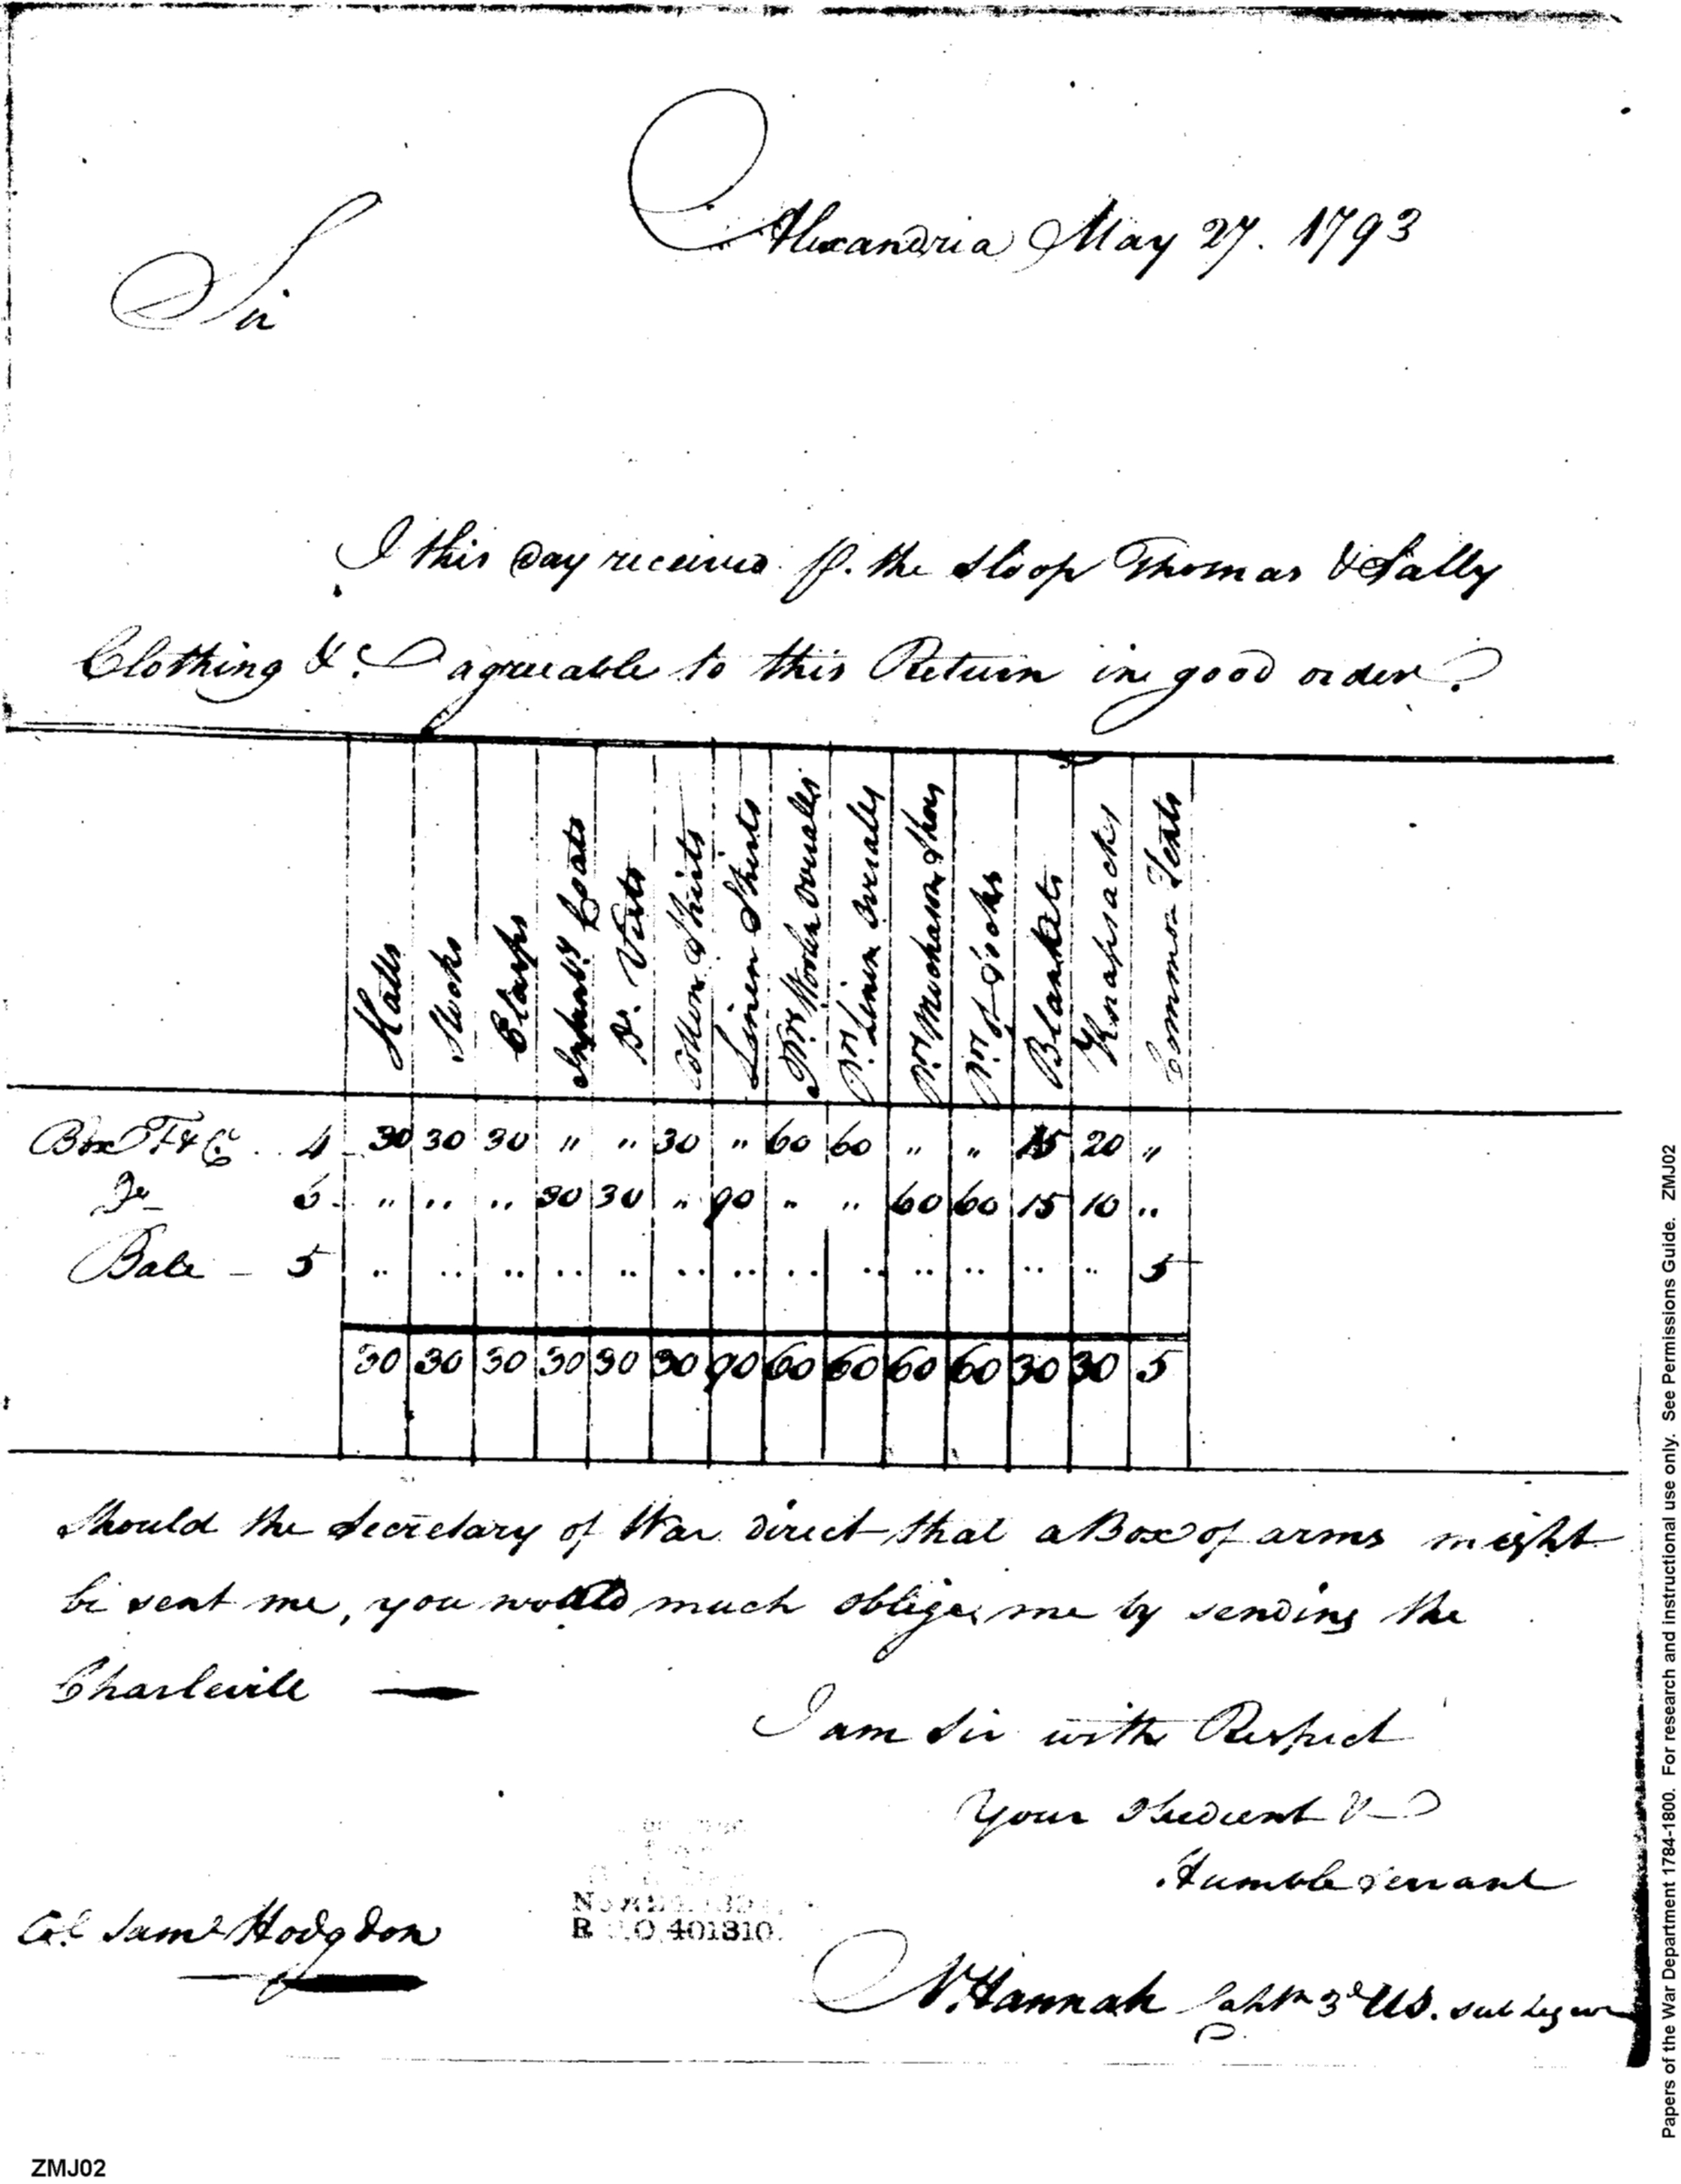 Alexandria May 27. 1793
Sir
I this day received p. the Sloop Thomas & Sally
Clothing &c agreeable to this Return in good order.
Hatts Stocks Clasps Infantry Coats Do. Vests Cotton Shirts Linen Shirts Prs Woolen Overalls Prs Linen Overalls Prs Mockason Shoes Prs of Socks Blankets Knapsacks Common Tents
Box 4 30 30 30 " " 30 " 60 60 " " 15 20 "
Do 6 " " " 30 30 " 90 " " 60 60 15 10 "
Bale 5 " " " " " " " " " " " " " 5
30 30 30 30 30 30 90 60 60 60 60 30 30 5
Should the Secretary of War direct that a Box of arms might
be sent me, you would much oblige me by sending the
Charleville
I am Sir with Respect
Your Obedient &
Humble Servant
Col Saml Hodgdon
R 401310.
N. Hannah Captn 3d US. Sub Legion
Papers of the War Department 1784-1800. For research and instructional use only. See Permissions Guide. ZMJ02
ZMJ02